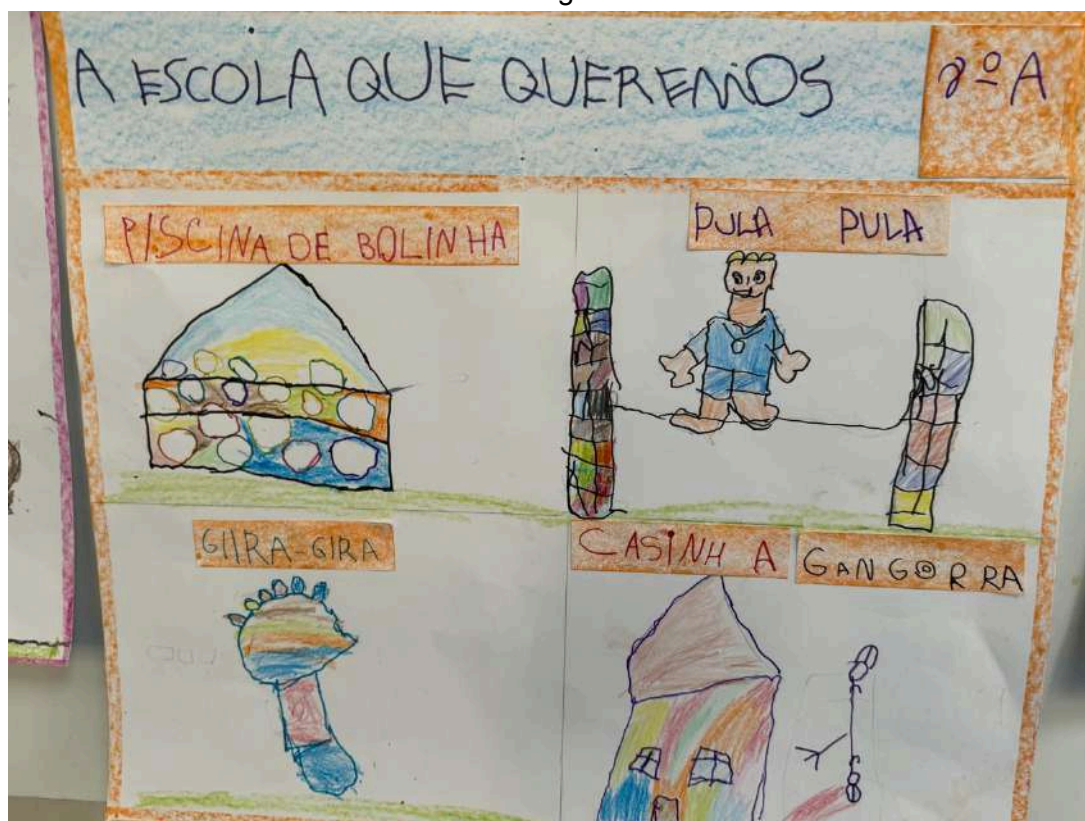 A ESCOLA QUE QUEREMOS
2º A
PISCINA DE BOLINHA
PULA PULA
GIIRA-GIRA
CASINHA
GANGORRA